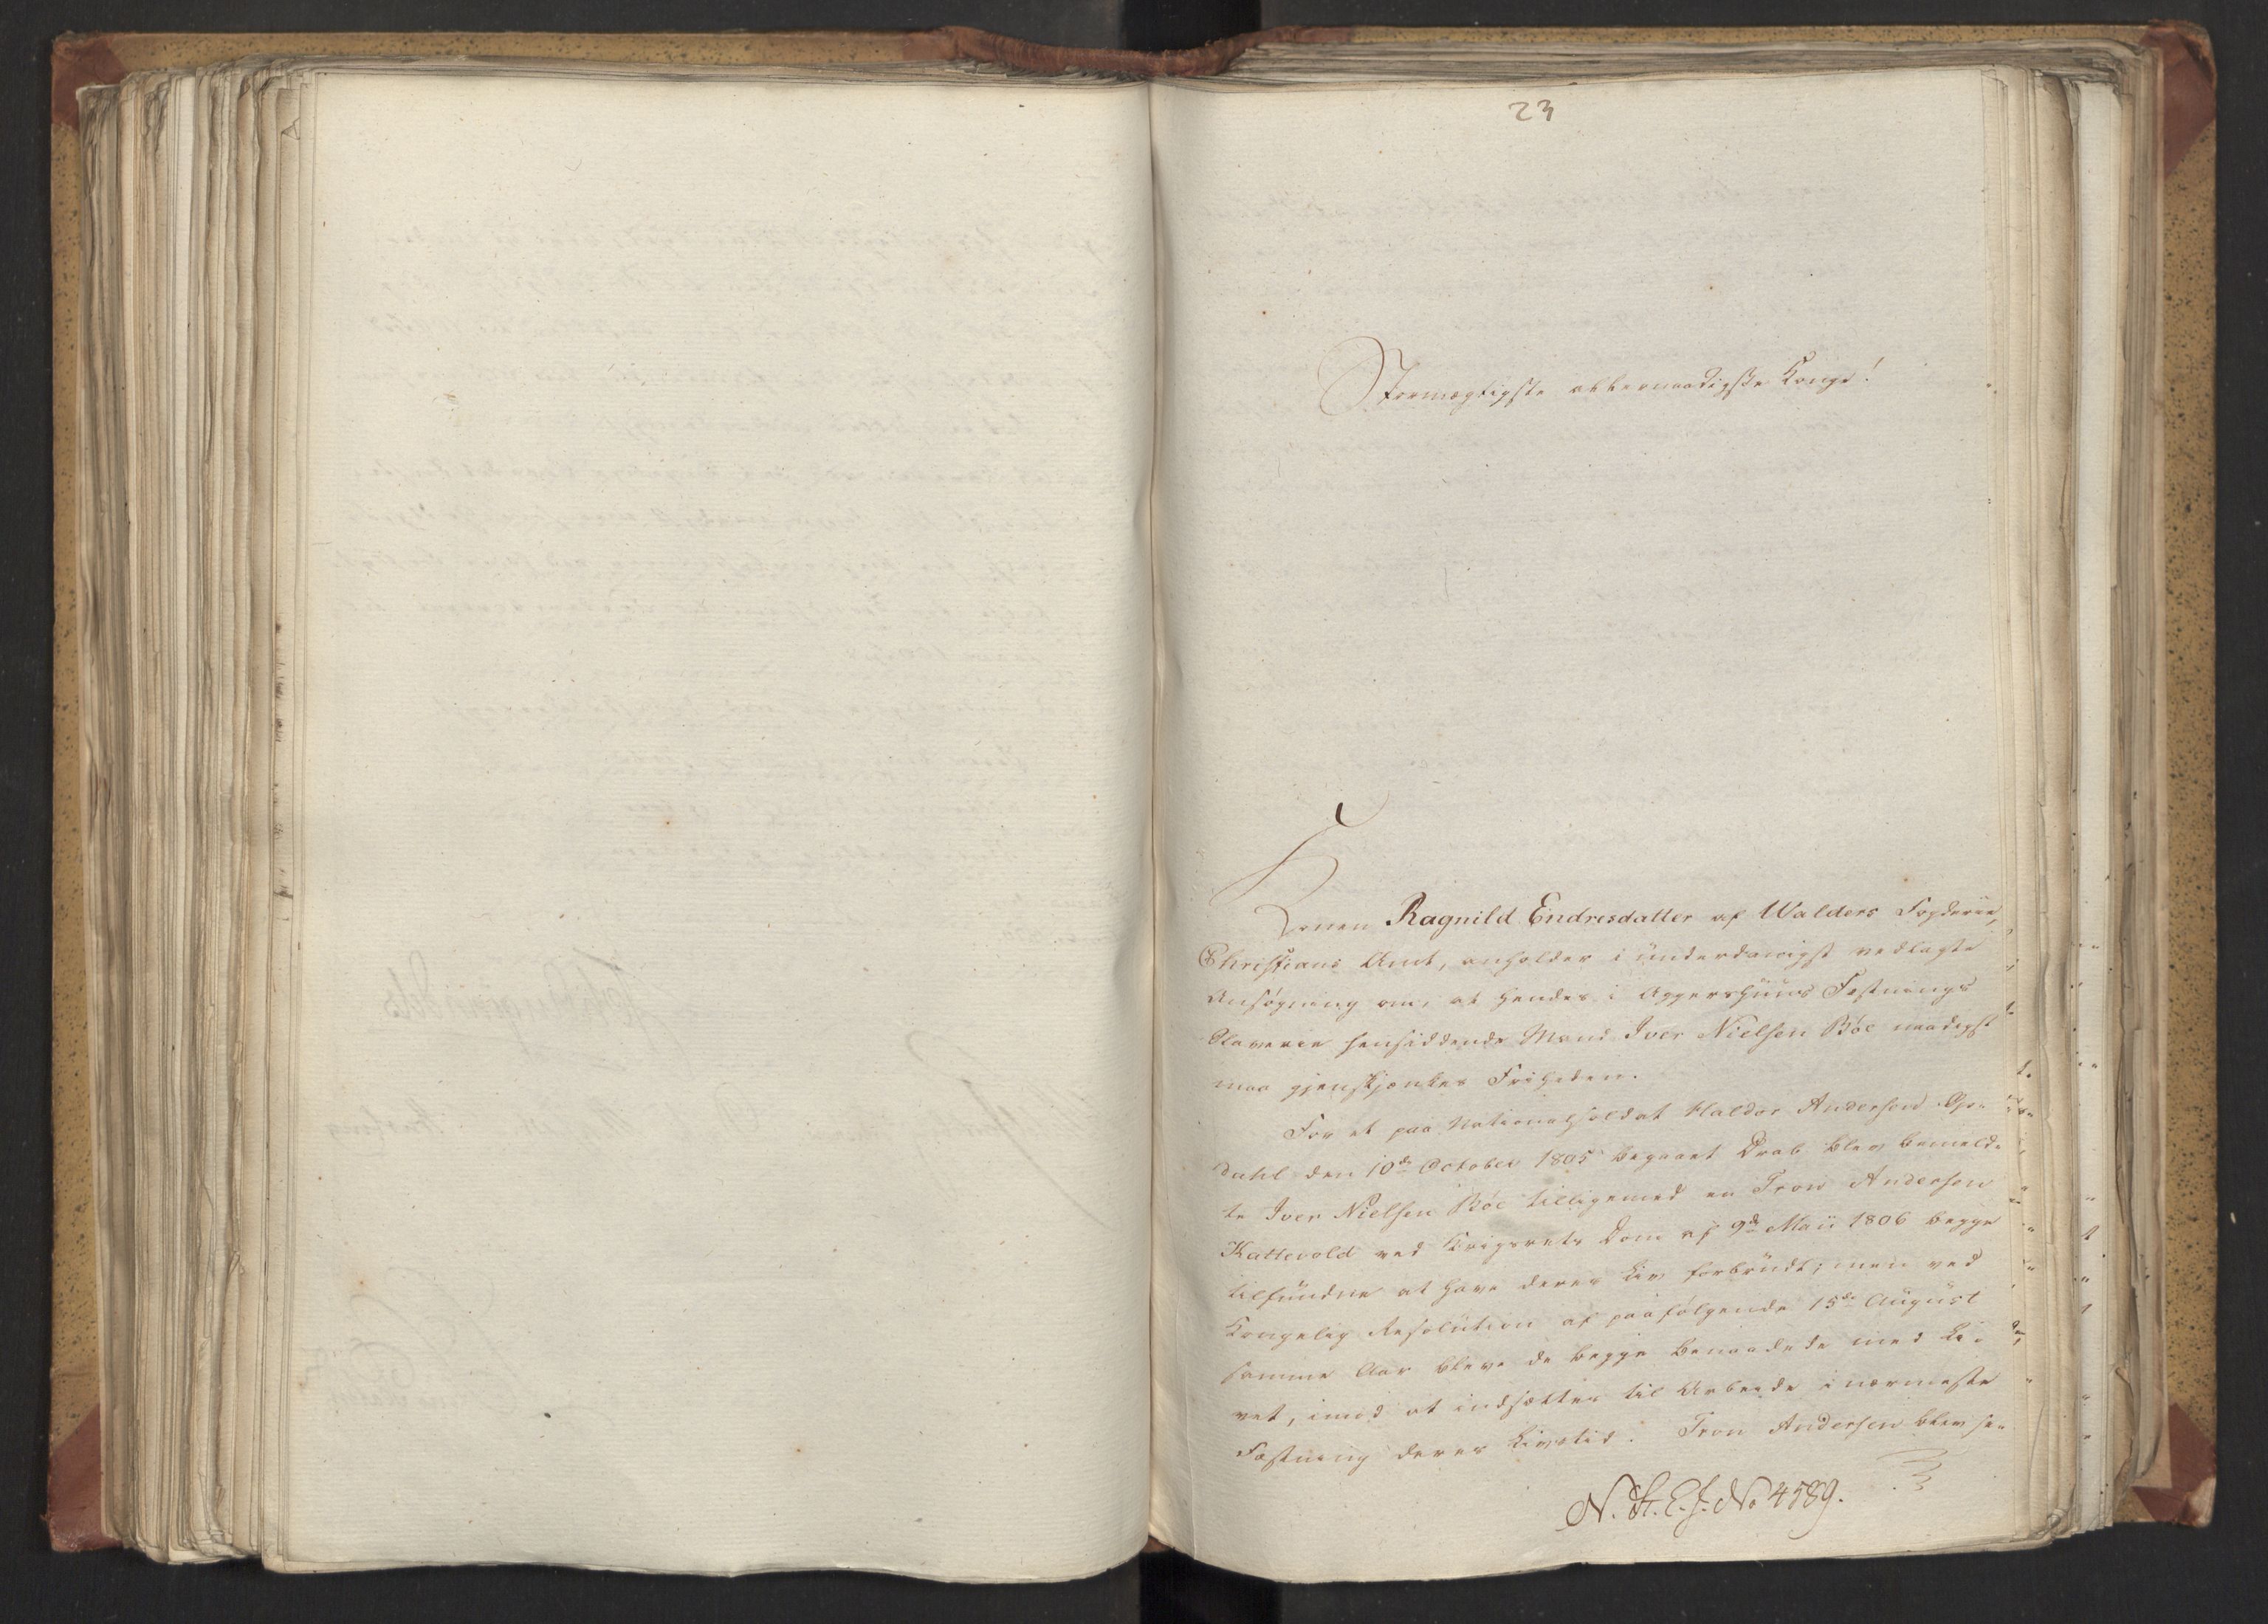 23
Stormægtigste allernaadigste Konge!
Konen Ragnild Endresdatter af Walders Fogderie,
Christians Amt, anholder i underdanigst vedlagte
Ansøgning om, at hendes i Aggershuus Festnings
Slaverie hensiddende Mand Iver Nielsen Bøe naadigst
maa gjenskjænkes Friheden.
For et paa Nationalsoldat Haldor Andersen
dahl den 10de October 1805 begaaet Drab blev bemeld-
te Iver Nielsen Bøe tilligemed en Tron Andersen
Kattevold ved Krigsrets Dom af 9de Maii 1806 begge
tilfundne at have deres Liv forbrudt; men ved
Kongelig Resolution af paafølgende 15de August
samme Aar bleve de begge benaadede med Li-
vet, imod at indsættes til Arbeide i nærmeste
Fæstning deres Livstid. Tron Andersen blev se-
N. St. E. J. No 4589.